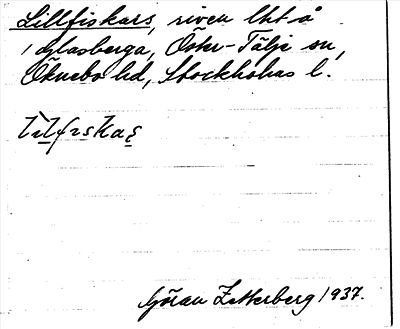 Lillfiskars, riven lht å
/ Glasberga, Öster-Tälje sn,
Öknebo hd, Stockholms l.
Göran Zetterberg 1937.